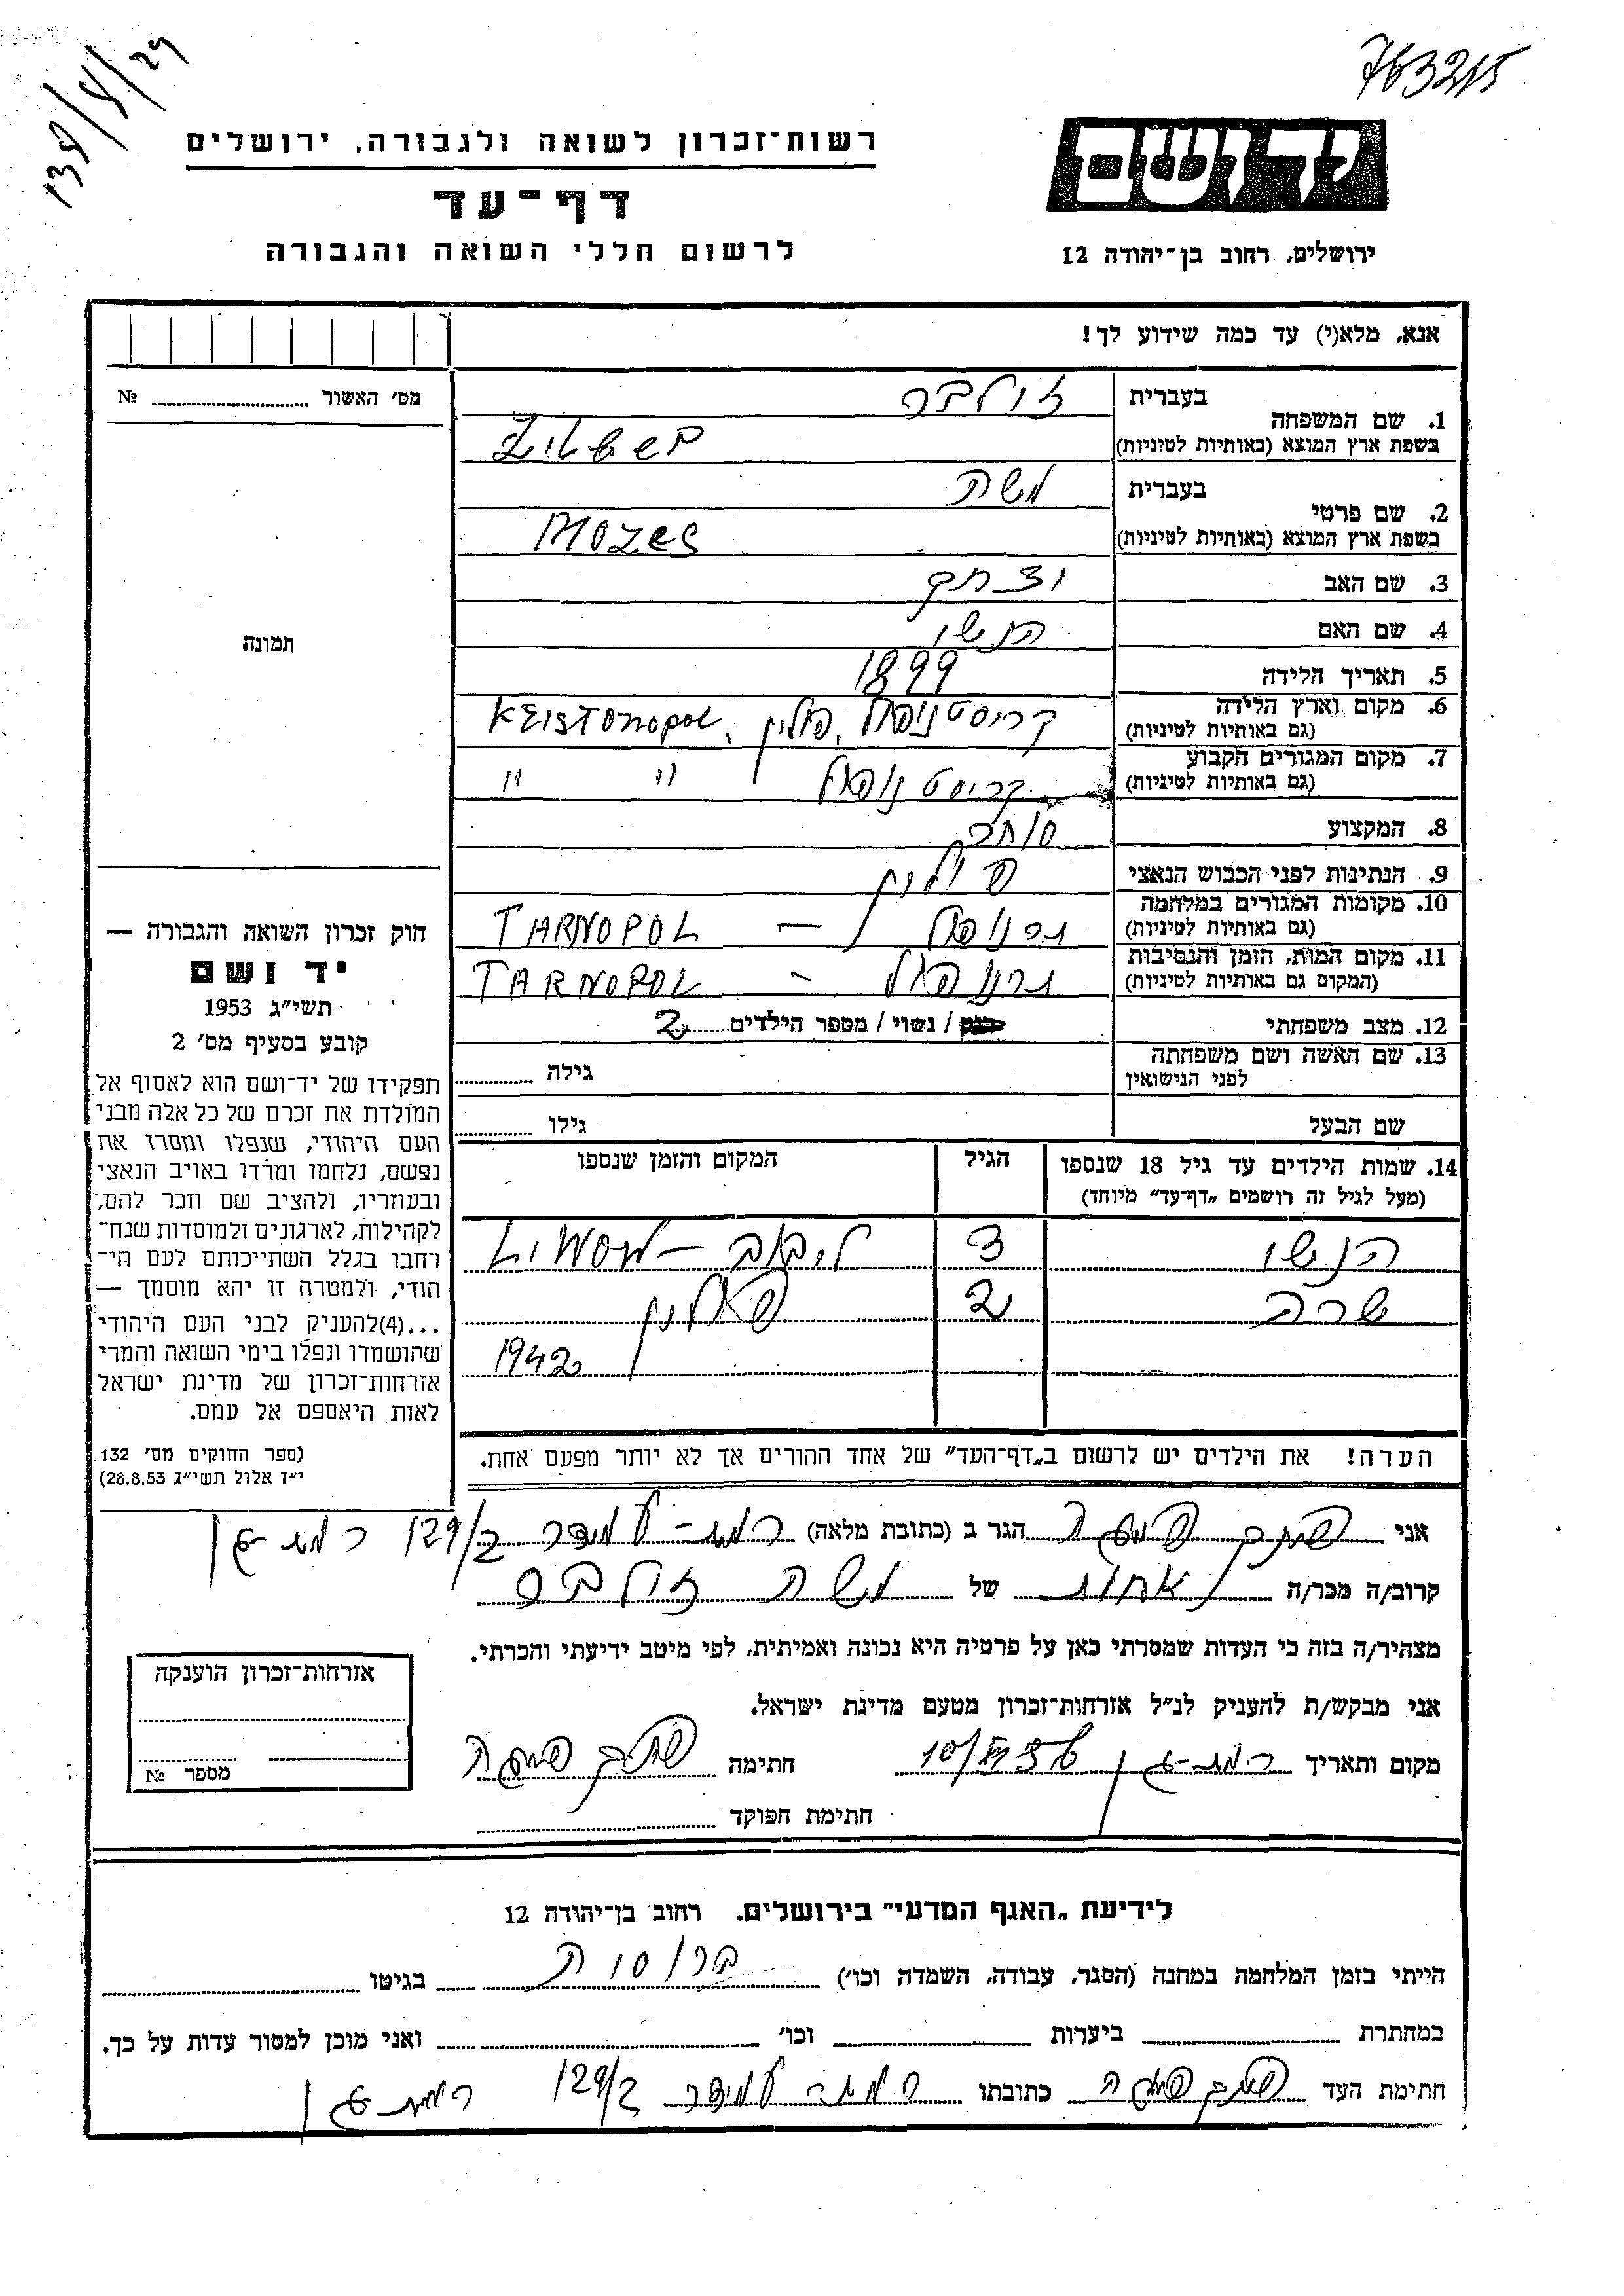 763215
139/8/29
רשות־זכרון לשואה ולגבורה, ירושלים
יד ושם
דף־עד
לרשום חללי השואה והגבורה
ירושלים, רחוב בן־יהודה 12
אנא, מלא(י) עד כמה שידוע לך!
מס׳ האשור ........ №
תמונה
1. שם המשפחה
בעברית זילבר
בשפת ארץ המוצא (באותיות לטיניות)
2. שם פרטי
בעברית משה
בשפת ארץ המוצא (באותיות לטיניות) Mozes
3. שם האב יצחק
4. שם האם הנשי
5. תאריך הלידה 1899
6. מקום וארץ הלידה קריסטנופול, פולין,
(גם באותיות לטיניות)
7. מקום המגורים הקבוע קריסטנופול " "
(גם באותיות לטיניות)
8. המקצוע סוחר
9. הנתינות לפני הכבוש הנאצי פולין
10. מקומות המגורים במלחמה טרנופול — TARNOPOL
(גם באותיות לטיניות)
11. מקום המות, הזמן והנסיבות טרנופול - TARNOPOL
(המקום גם באותיות לטיניות)
12. מצב משפחתי / נשוי / מספר הילדים 2
13. שם האשה ושם משפחתה גילה
לפני הנישואין
שם הבעל גילו
14. שמות הילדים עד גיל 18 שנספו הגיל המקום והזמן שנספו
(מעל לגיל זה רושמים „דף־עד” מיוחד)
הנשי 3 לבוב —
שרה 2 פולין
1942
הערה! את הילדים יש לרשום ב„דף־העד” של אחד ההורים אך לא יותר מפעם אחת.
חוק זכרון השואה והגבורה —
יד ושם
תשי״ג 1953
קובע בסעיף מס׳ 2
תפקידו של יד־ושם הוא לאסוף אל
המולדת את זכרם של כל אלה מבני
העם היהודי, שנפלו ומסרו את
נפשם, נלחמו ומרדו באויב הנאצי
ובעוזריו, ולהציב שם וזכר להם,
לקהילות, לארגונים ולמוסדות שנח־
רחבו בגלל השתייכותם לעם הי־
הודי, ולמטרה זו יהא מוסמך —
...(4)להעניק לבני העם היהודי
שהושמדו ונפלו בימי השואה והמרי
אזרחות־זכרון של מדינת ישראל
לאות היאספם אל עמם.
(ספר החוקים מס׳ 132
י״ז אלול תשי״ג 28.8.53)
אני הגר ב (כתובת מלאה) רמת-עמידר 129/2 רמת-גן
קרוב/ה מכר/ה אחות של משה זילבר
מצהיר/ה בזה כי העדות שמסרתי כאן על פרטיה היא נכונה ואמיתית, לפי מיטב ידיעתי והכרתי.
אני מבקש/ת להעניק לנ״ל אזרחות־זכרון מטעם מדינת ישראל.
מקום ותאריך רמת-גן חתימה
חתימת הפוקד
אזרחות־זכרון הוענקה
מספר №
לידיעת „האגף המדעי” בירושלים. רחוב בן־יהודה 12
הייתי בזמן המלחמה במחנה (הסגר, עבודה, השמדה וכו׳) ברוסיה בגיטו
במחתרת ביערות וכו׳ ואני מוכן למסור עדות על כך.
חתימת העד כתובתו רמת עמידר 129/2 רמת-גן